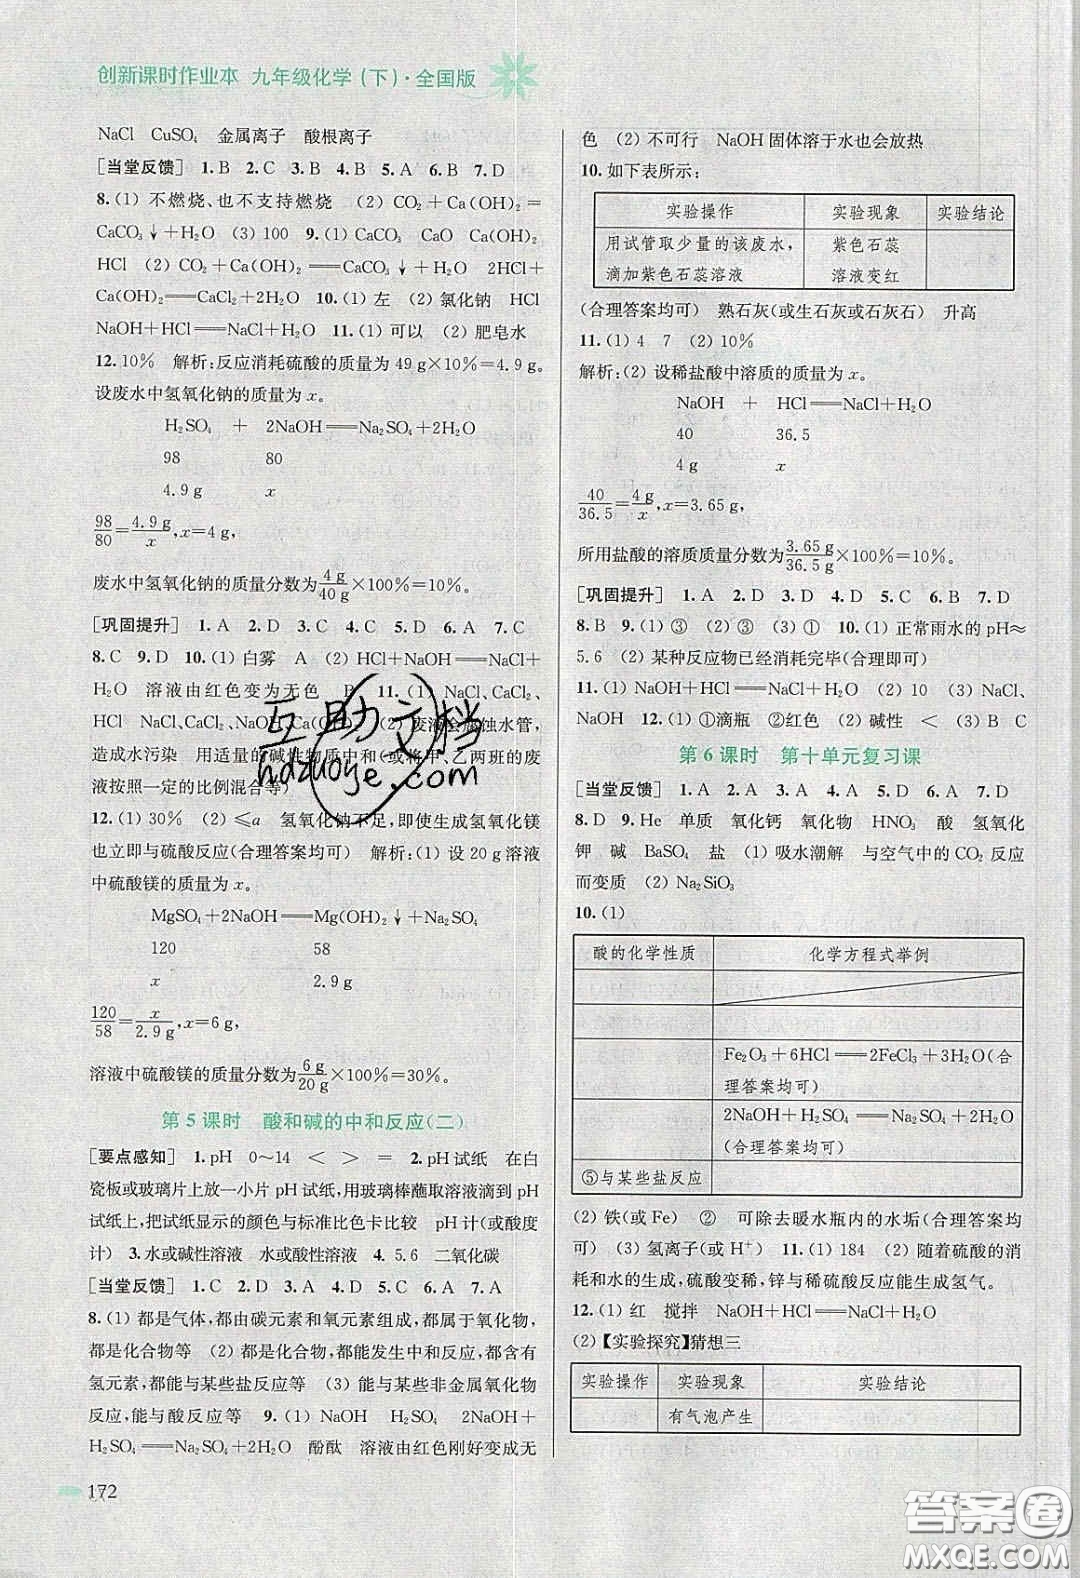 创新课时作业本 九年级化学(下)·全国版
NaCl CuSO₄ 金属离子 酸根离子
[当堂反馈] 1.B 2.C 3.B 4.B 5.A 6.B 7.D
8.(1) 不燃烧、也不支持燃烧 (2) CO₂+Ca(OH)₂=
CaCO₃↓+H₂O (3) 100 9.(1) CaCO₃ CaO Ca(OH)₂
HCl (2) CO₂+Ca(OH)₂══CaCO₃↓+H₂O 2HCl+
Ca(OH)₂══CaCl₂+2H₂O 10.(1) 左 (2) 氯化钠 HCl
NaOH+HCl══NaCl+H₂O 11.(1) 可以 (2) 肥皂水
12.10% 解析:反应消耗硫酸的质量为49 g×10%=4.9 g。
设废水中氢氧化钠的质量为x。
H₂SO₄ + 2NaOH══Na₂SO₄+2H₂O
98 80
4.9 g x
98/80=4.9 g/x,x=4 g,
废水中氢氧化钠的质量分数为4 g/40 g×100%=10%。
[巩固提升] 1.A 2.D 3.D 4.C 5.D 6.A 7.C
8.C 9.D 10.(1) 白雾 A (2) HCl+NaOH══NaCl+
H₂O 溶液由红色变为无色 B 11.(1) NaCl、CaCl₂
HCl NaCl、CaCl₂、NaOH、Ca(OH)₂ (2) 废液会腐蚀水管,
造成水污染 用适量的碱性物质中和(或将甲、乙两班的废
液按照一定的比例混合等)
12.(1) 30% (2) ≤a 氢氧化钠不足,即使生成氢氧化镁
也立即与硫酸反应(合理答案均可) 解析:(1) 设20 g溶液
中硫酸镁的质量为x。
MgSO₄+2NaOH══Mg(OH)₂↓+Na₂SO₄
120 58
x 2.9 g
120/58=x/2.9 g,x=6 g,
溶液中硫酸镁的质量分数为6 g/20 g×100%=30%。
第5课时 酸和碱的中和反应(二)
[要点感知] 1.pH 0~14 < > = 2.pH试纸 在白
瓷板或玻璃片上放一小片pH试纸,用玻璃棒蘸取溶液滴到pH
试纸上,把试纸显示的颜色与标准比色卡比较 pH计(或酸度
计) 3.水或碱性溶液 水或酸性溶液 4.5.6 二氧化碳
[当堂反馈] 1.C 2.D 3.A 4.C 5.A 6.A 7.A
8.(1) 都是气体,都由碳元素和氧元素组成,都属于氧化物,
都是化合物等 (2) 都是化合物,都能发生中和反应,都含有
氢元素,都能与某些盐反应等 (3) 能与某些非金属氧化物
反应,能与酸反应等 9.(1) NaOH H₂SO₄ 2NaOH+
H₂SO₄══Na₂SO₄+2H₂O 酚酞 溶液由红色刚好变成无
172
色 (2) 不可行 NaOH固体溶于水也会放热
10.如下表所示:
实验操作 实验现象 实验结论
用试管取少量的该废水, 紫色石蕊
滴加紫色石蕊溶液 溶液变红
(合理答案均可) 熟石灰(或生石灰或石灰石) 升高
11.(1) 4 7 (2) 10%
解析:(2) 设稀盐酸中溶质的质量为x。
NaOH + HCl══NaCl+H₂O
40 36.5
4 g x
40/36.5=4 g/x,x=3.65 g,
所用盐酸的溶质质量分数为3.65 g/36.5 g×100%=10%。
[巩固提升] 1.A 2.D 3.D 4.D 5.C 6.B 7.D
8.B 9.(1) ③ (2) ③ (3) ① 10.(1) 正常雨水的pH≈
5.6 (2) 某种反应物已经消耗完毕(合理即可)
11.(1) NaOH+HCl══NaCl+H₂O (2) 10 (3) NaCl、
NaOH 12.(1) ①滴瓶 ②红色 (2) 碱性 < (3) B C
第6课时 第十单元复习课
[当堂反馈] 1.A 2.A 3.A 4.A 5.D 6.A 7.D
8.D 9.He 单质 氧化钙 氧化物 HNO₃ 酸 氢氧化
钾 碱 BaSO₄ 盐 (1) 吸水潮解 与空气中的CO₂反应
而变质 (2) Na₂SiO₃
10.(1)
酸的化学性质 化学方程式举例
Fe₂O₃+6HCl══2FeCl₃+3H₂O(合
理答案均可)
2NaOH+H₂SO₄══Na₂SO₄+2H₂O
(合理答案均可)
⑤与某些盐反应
(2) 铁(或Fe) ② 可除去暖水瓶内的水垢(合理答案均
可) (3) 氢离子(或H⁺) 11.(1) 184 (2) 随着硫酸的消
耗和水的生成,硫酸变稀,锌与稀硫酸反应能生成氢气。
12.(1) 红 搅拌 NaOH+HCl══NaCl+H₂O
(2)【实验探究】猜想三
实验操作 实验现象 实验结论
有气泡产生
互助文档
hdzuoye.com
答案圈
MXQE.COM